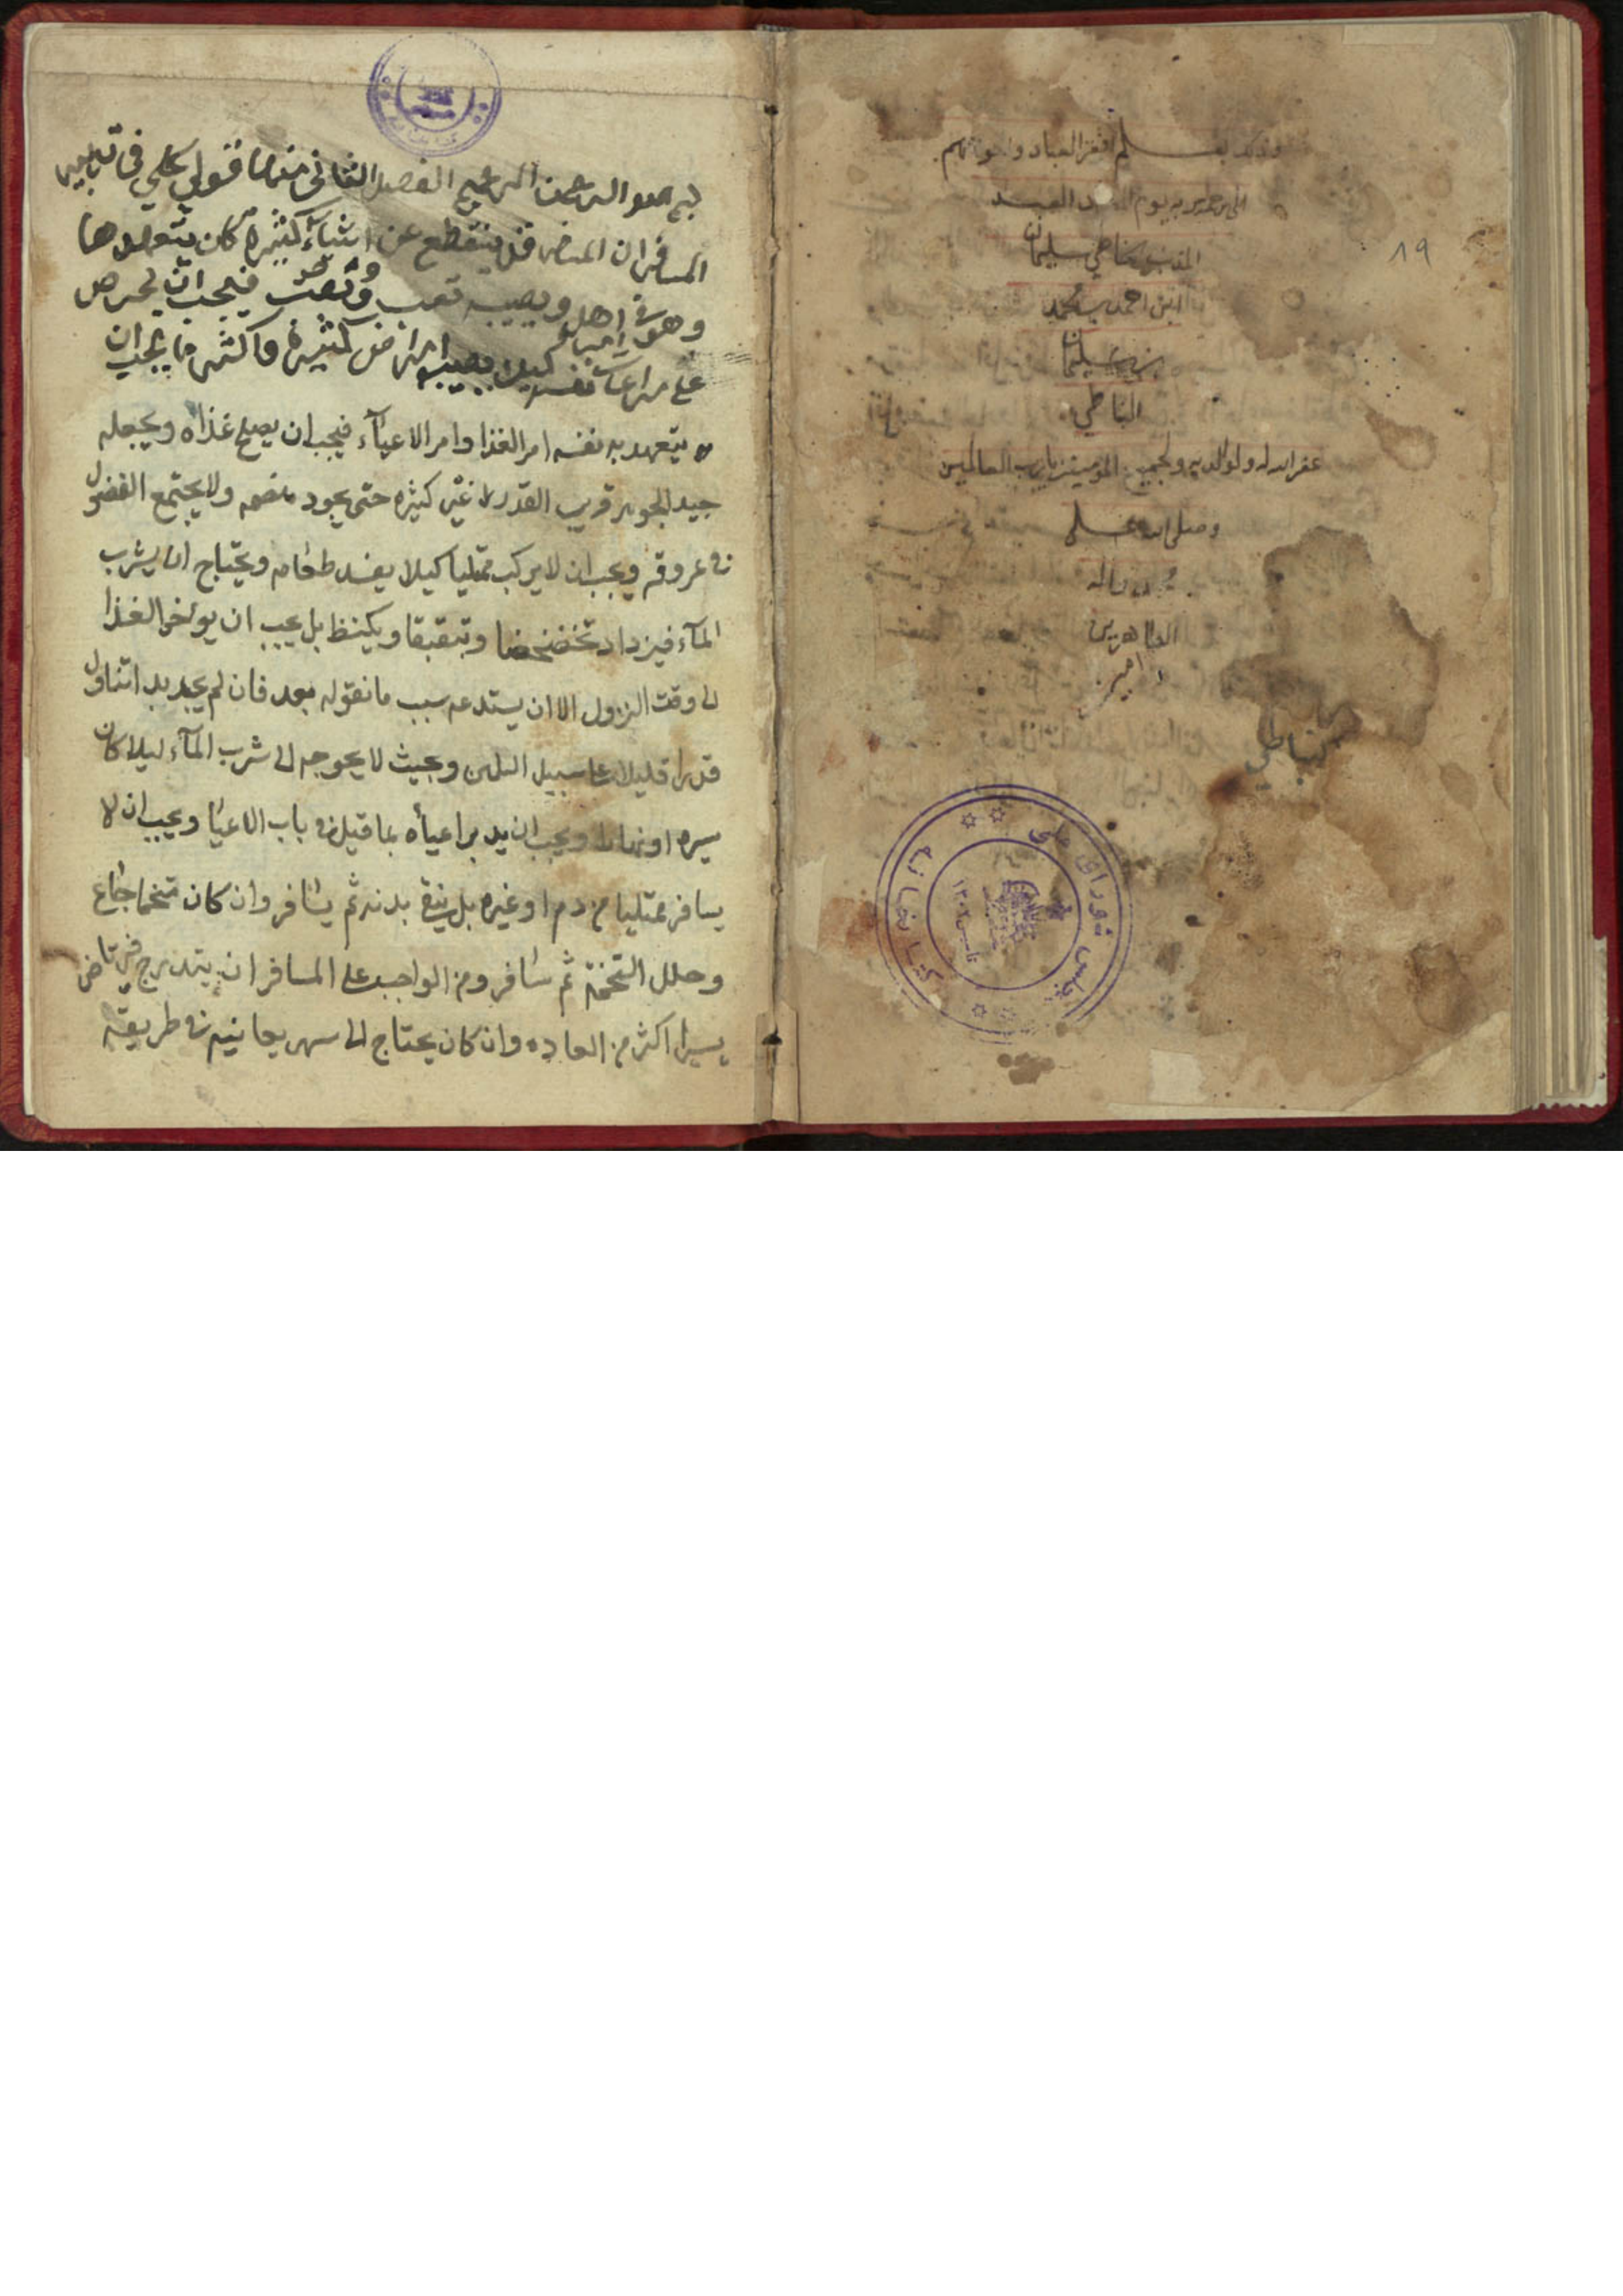 وذلك بقلم افقر العباد واحوجهم
الى رحمة ربه يوم العبد
المذنب الخاطي سليمان
ابن احمد بن محمد
بن سليمان
النباطي
غفر الله له ولوالديه ولجميع المؤمنين يا رب العالمين
وصلى الله على
محمد واله
الطاهرين
امين
١٩
نباطي
كتابخانه مجلس شورای ملی
بسم الله الرحمن الرحيم الفصل الثاني قول كلي في تدبير
المسافر ان المسافر قد ينقطع عن اشياء كثيره كان يتعهدها
وهو في اهله ويصيبه تعب فيجب ان يحرص
على مراعات نفسه كيلا يصيبه امراض كثيرة واكثر ما يجب ان
يتعهد به نفسه امر الغذا وامر الاعيآء فيجب ان يصلح غذاه ويجعله
جيد الجوهر قريب القدر لا غير كثيره حتى يجود هضمه ولا يجتمع الفضول
في عروقه ويجب ان لا يركب ممتليا كيلا يفسد طعامه ويحتاج ان يشرب
المآء فيزداد تخضخضا وتبقبقا ويكتظ بل يجب ان يوخر الغذا
الى وقت النزول الا ان يستدعيه سبب ما نقوله بعد فان لم يجد بد اتناول
قدرا قليلا على سبيل التلهن وبحيث لا يحوجه الى شرب المآء ليلا كان
سيره او نهارا ويجب ان يدبر اعيآه بما قيل في باب الاعيا ويجب ان لا
يسافر ممتليا من دم او غيره بل ينقي بدنه ثم يسافر وان كان متخما جاع
وحلل التخمة ثم سافر ومن الواجب على المسافر ان يتدرج فيرتاض
يسيرا اكثر من العاده وان كان يحتاج الى سهر يعانيه في طريقه